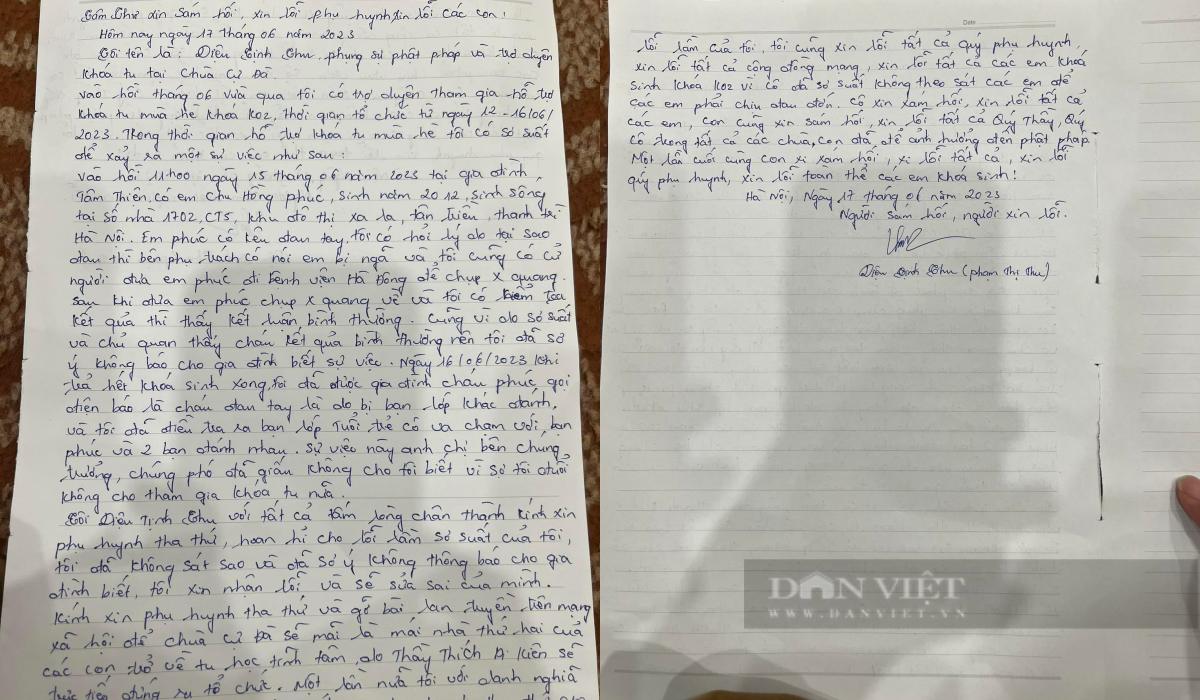 Tâm Thư xin Sám hối, xin lỗi phụ huynh xin lỗi các con!
Hôm nay ngày 17 tháng 06 năm 2023
Tôi tên là: Diệu Tịnh Thu, phụng sự phật pháp và trợ duyên
khóa tu tại Chùa Cự Đà.
vào hồi tháng 06 vừa qua tôi có trợ duyên tham gia hỗ trợ
khóa tu mùa hè khóa K02, thời gian tổ chức từ ngày 12-16/06/
2023. Trong thời gian hỗ trợ khóa tu mùa hè tôi có sơ suất
để xảy ra một sự việc như sau:
vào hồi 11h00 ngày 15 tháng 06 năm 2023 tại gia đình
Tâm Thiện, có em Chu Hồng phúc, sinh năm 2012, sinh sống
tại số nhà 1702, CT5, khu đô thị xa la, tân triều, thanh trì
Hà Nội. Em phúc có kêu đau tay, tôi có hỏi lý do tại sao
đau thì bên phụ trách có nói em bị ngã và tôi cũng có cử
người đưa em phúc đi bệnh viện Hà Đông để chụp X quang.
sau khi đưa em phúc chụp X quang về và tôi có kiểm tra
kết quả thì thấy kết luận bình thường. Cũng vì do sơ suất
và chủ quan thấy cháu kết quả bình thường nên tôi đã sơ
ý không báo cho gia đình biết sự việc. Ngày 16/06/2023 khi
trả hết khóa sinh xong, tôi đã được gia đình cháu phúc gọi
điện báo là cháu đau tay là do bị bạn lớp khác đánh,
và tôi đã điều tra ra bạn lớp Tuổi trẻ có va chạm với bạn
phúc và 2 bạn đánh nhau. sự việc này anh chị bên chúng
trưởng, chúng phó đã giấu không cho tôi biết vì sợ tôi đuổi
không cho tham gia khóa tu nữa.
Tôi Diệu Tịnh Thu với tất cả tấm lòng chân thành kính xin
phụ huynh tha thứ, hoan hỉ cho lỗi lầm sơ suất của tôi,
tôi đã không sát sao và đã sơ ý không thông báo cho gia
đình biết, tôi xin nhận lỗi và sẽ sửa sai của mình.
Kính xin phụ huynh tha thứ và gỡ bài lan truyền trên mạng
xã hội để chùa cự đà sẽ mãi là mái nhà thứ hai của
các con trở về tu học tịnh tâm, do Thầy Thích Đ. Kiên sẽ
trực tiếp đứng ra tổ chức. Một lần nữa tôi với danh nghĩa
Date
lỗi lầm của tôi, tôi cũng xin lỗi tất cả quý phụ huynh,
xin lỗi tất cả cộng đồng mạng, xin lỗi tất cả các em khóa
sinh khóa K02 vì cô đã sơ suất không theo sát các em để
các em phải chịu đau đớn. Cô xin xám hối, xin lỗi tất cả
các em, con cũng xin sám hối, xin lỗi tất cả Quý Thầy, Quý
Cô trong tất cả các chùa, con đã để ảnh hưởng đến phật pháp.
Một lần cuối cùng con xi xám hối, xi lỗi tất cả, xin lỗi
quý phụ huynh, xin lỗi toàn thể các em khóa sinh!
Hà Nội, Ngày 17 tháng 06 năm 2023
Người sám hối, người xin lỗi.
Diệu Tịnh Thu (phạm Thị Thu)
DÂN VIỆT
WWW.DANVIET.VN